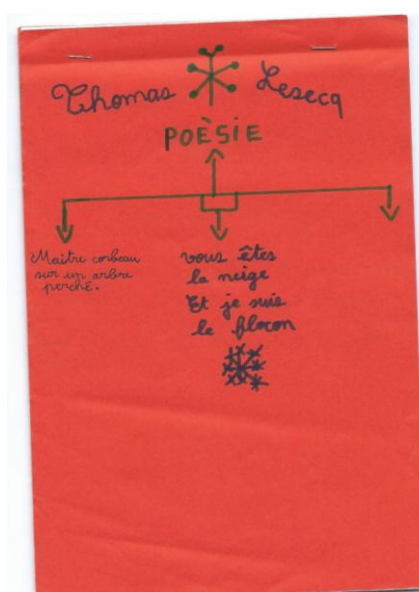 Thomas Lesecq
POÈSIE
Maître corbeau
sur un arbre
perché.
vous êtes
la neige
Et je suis
le flocon